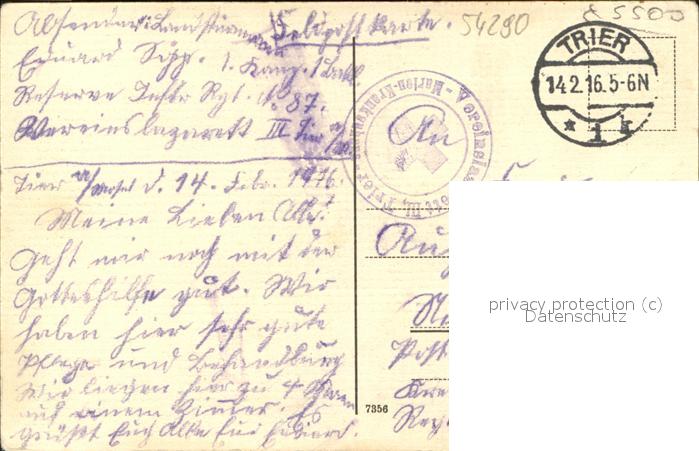 Absender: Landsturmmann
Feldpostkarte.
54290
E 5500
Eduard Sipp. 1. Komp. 1 Batl.
Reserve Inftr Rgt. No 87.
Vereinslazarett III Trier a/M
TRIER
14.2.16.5-6N
* 1 k
Vereinslazarett III, Trier
A - Marien-Krankenhaus
An
Trier a/Mosel d. 14. Febr. 1916.
Meine Lieben Alle!
Geht mir noch mit der
Gotteshilfe gut. Wir
haben hier sehr gute
Pflege und Behandlung
Wir liegen hier zu 4 Mann
auf einem Zimmer. Es
grüßt Euch Alle Eur Eduard.
Post
7356
privacy protection (c)
Datenschutz